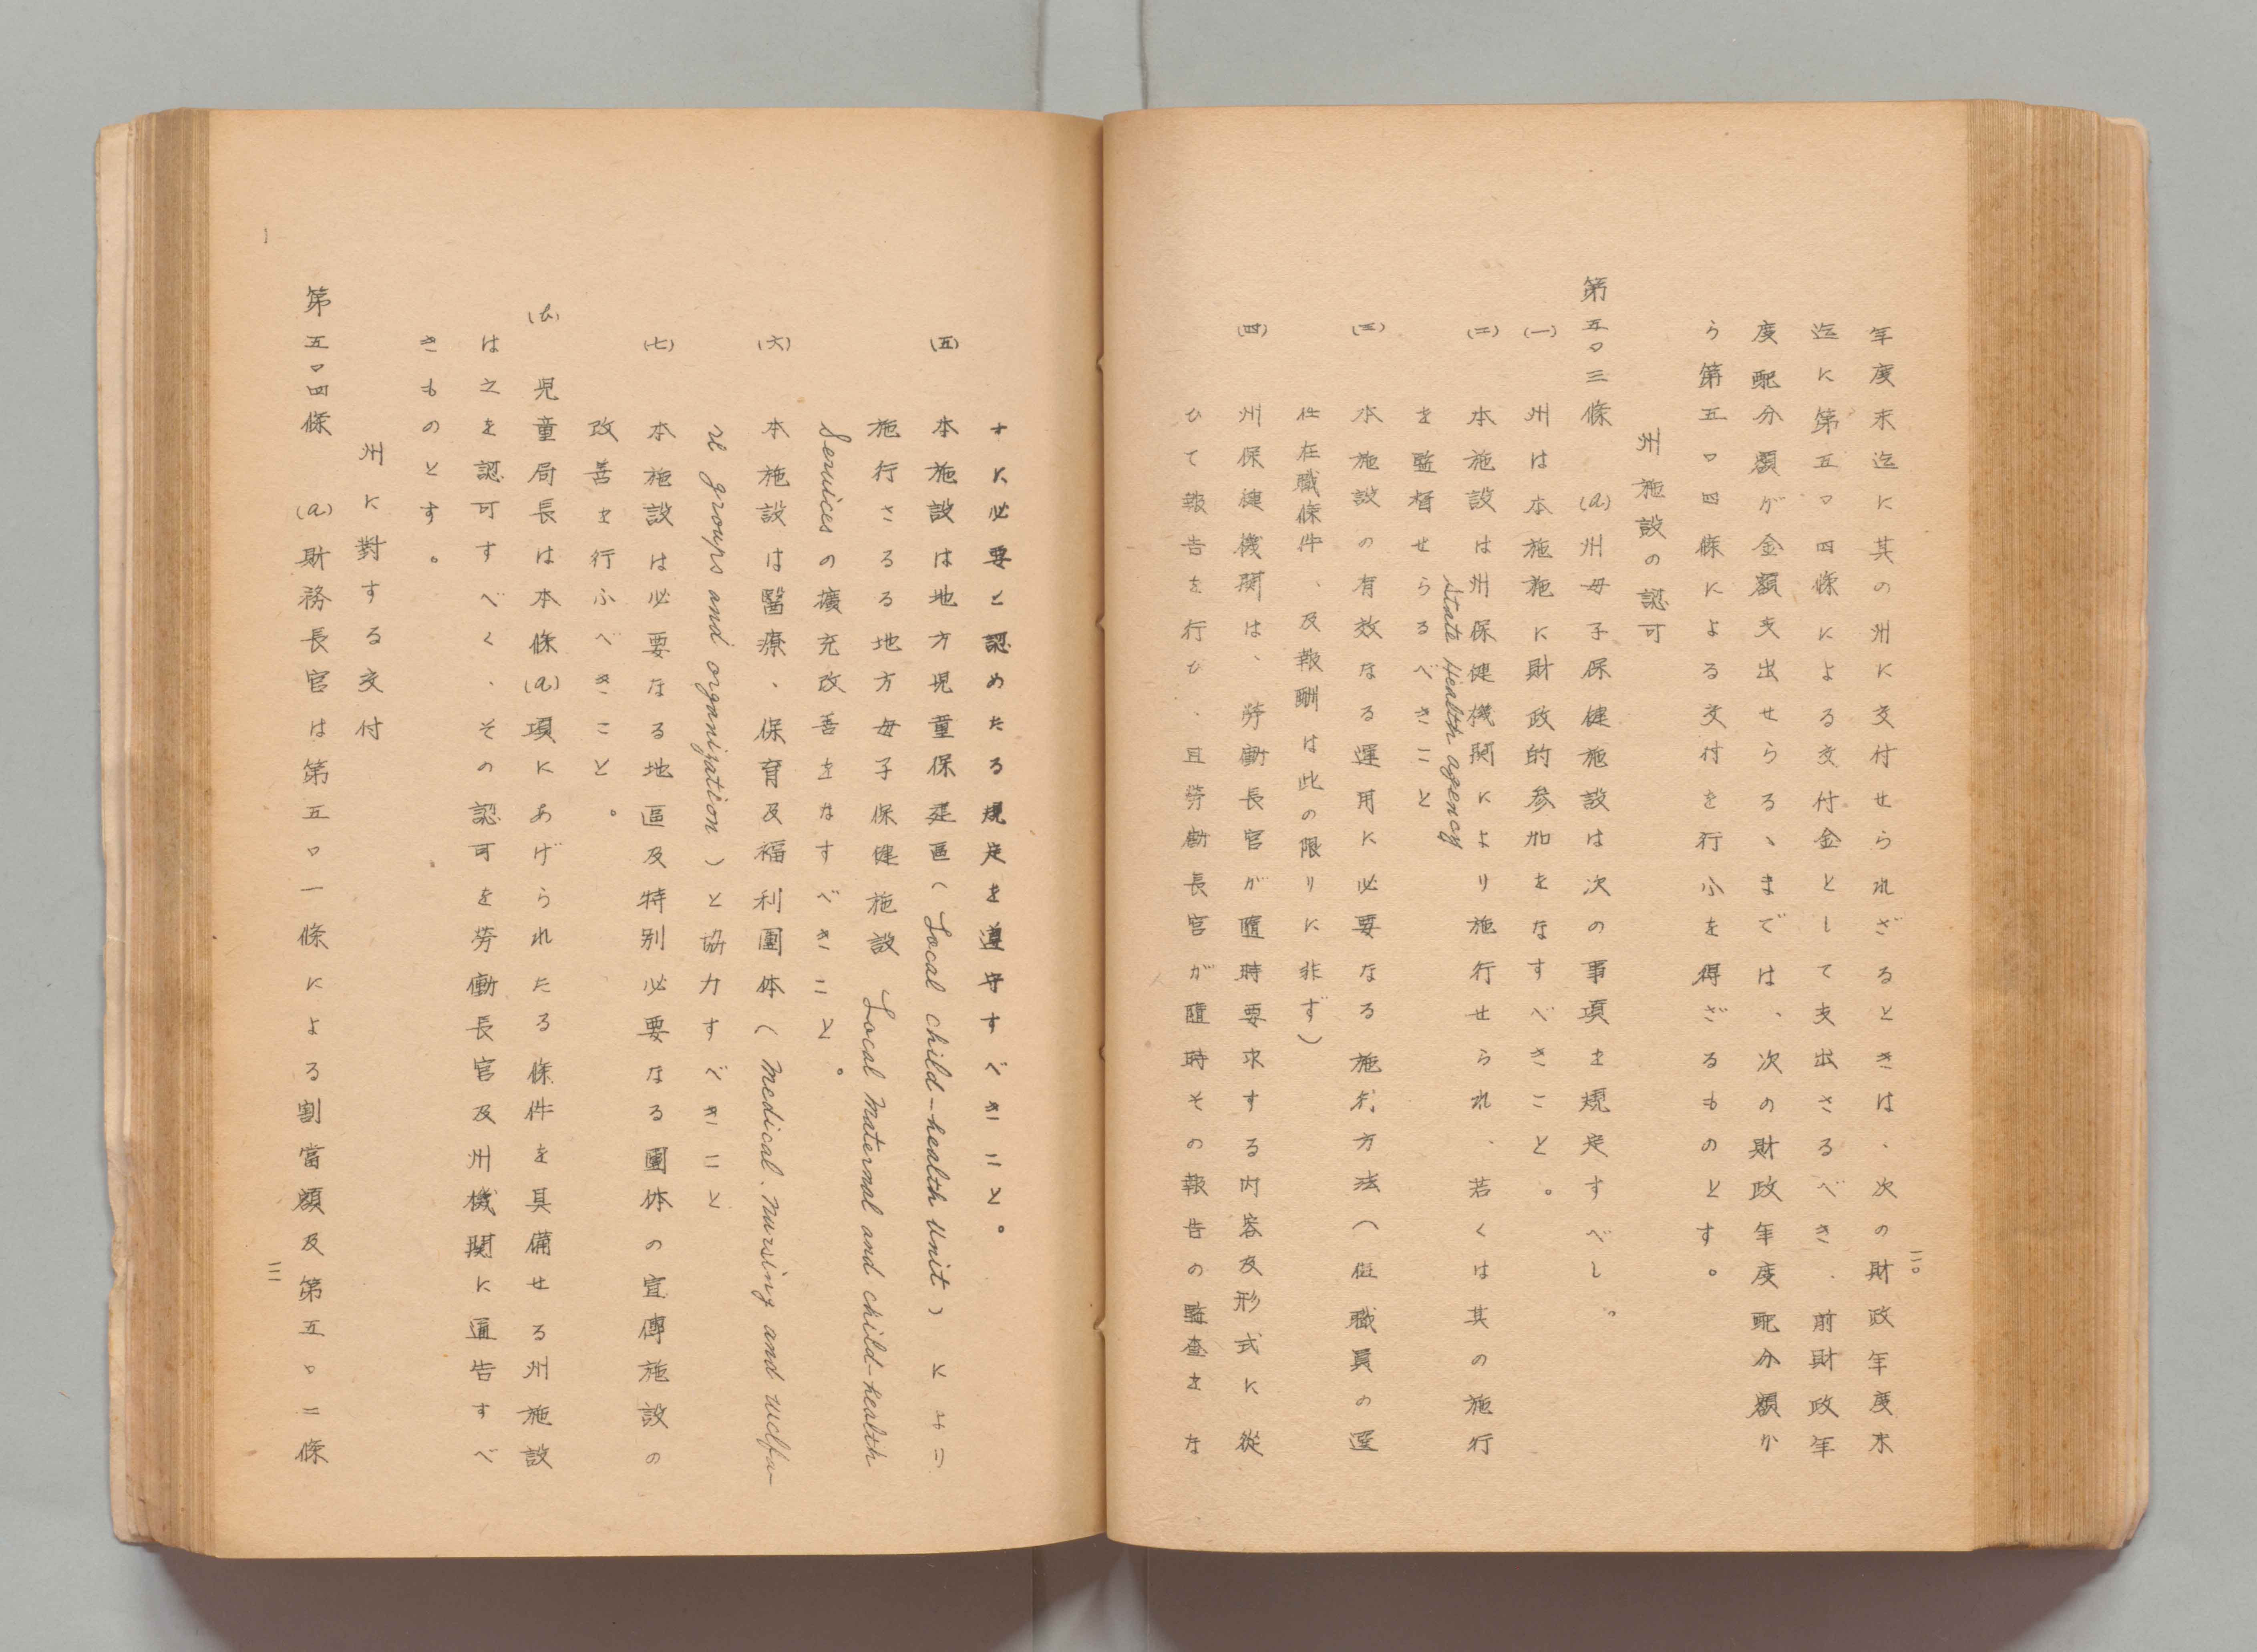 年度末迄に其の州に交付せられざるときは、次の財政年度末
迄に第五〇四條による交付金として支出さるべき、前財政年
度配分額が金額支出せらるゝまでは、次の財政年度配分額か
ら第五〇四條による交付を行ふを得ざるものとす。
州施設の認可
第五〇三條 (a)州母子保健施設は次の事項を規定すべし。
(一) 州は本施施に財政的参加をなすべきこと。
(二) 本施設は州保健機関により施行せられ、若くは其の施行
State Health agency
を監督せらるべきこと
(三) 本施設の有效なる運用に必要なる施行方法(但職員の選
任在職條件、及報酬は此の限りに非ず)
(四) 州保健機関は、勞働長官が隨時要求する内容及形式に從
ひて報告を行ひ、且勞働長官が隨時その報告の監査をな
二〇
すに必要と認めたる規定を遵守すべきこと。
(五) 本施設は地方児童保健區(Local child-health unit)により
施行さるる地方母子保健施設 Local Maternal and child-health
Services の擴充改善をなすべきこと。
(六) 本施設は醫療、保育及福利團体(Medical. nursing and welfa-
re groups and organization)と協力すべきこと
(七) 本施設は必要なる地區及特別必要なる團体の宣傳施設の
改善を行ふべきこと。
(b) 児童局長は本條(a)項にあげられたる條件を具備せる州施設
は之を認可すべく、その認可を勞働長官及州機関に通告すべ
きものとす。
州に對する交付
第五〇四條 (a)財務長官は第五〇一條による割當額及第五〇二條
二一